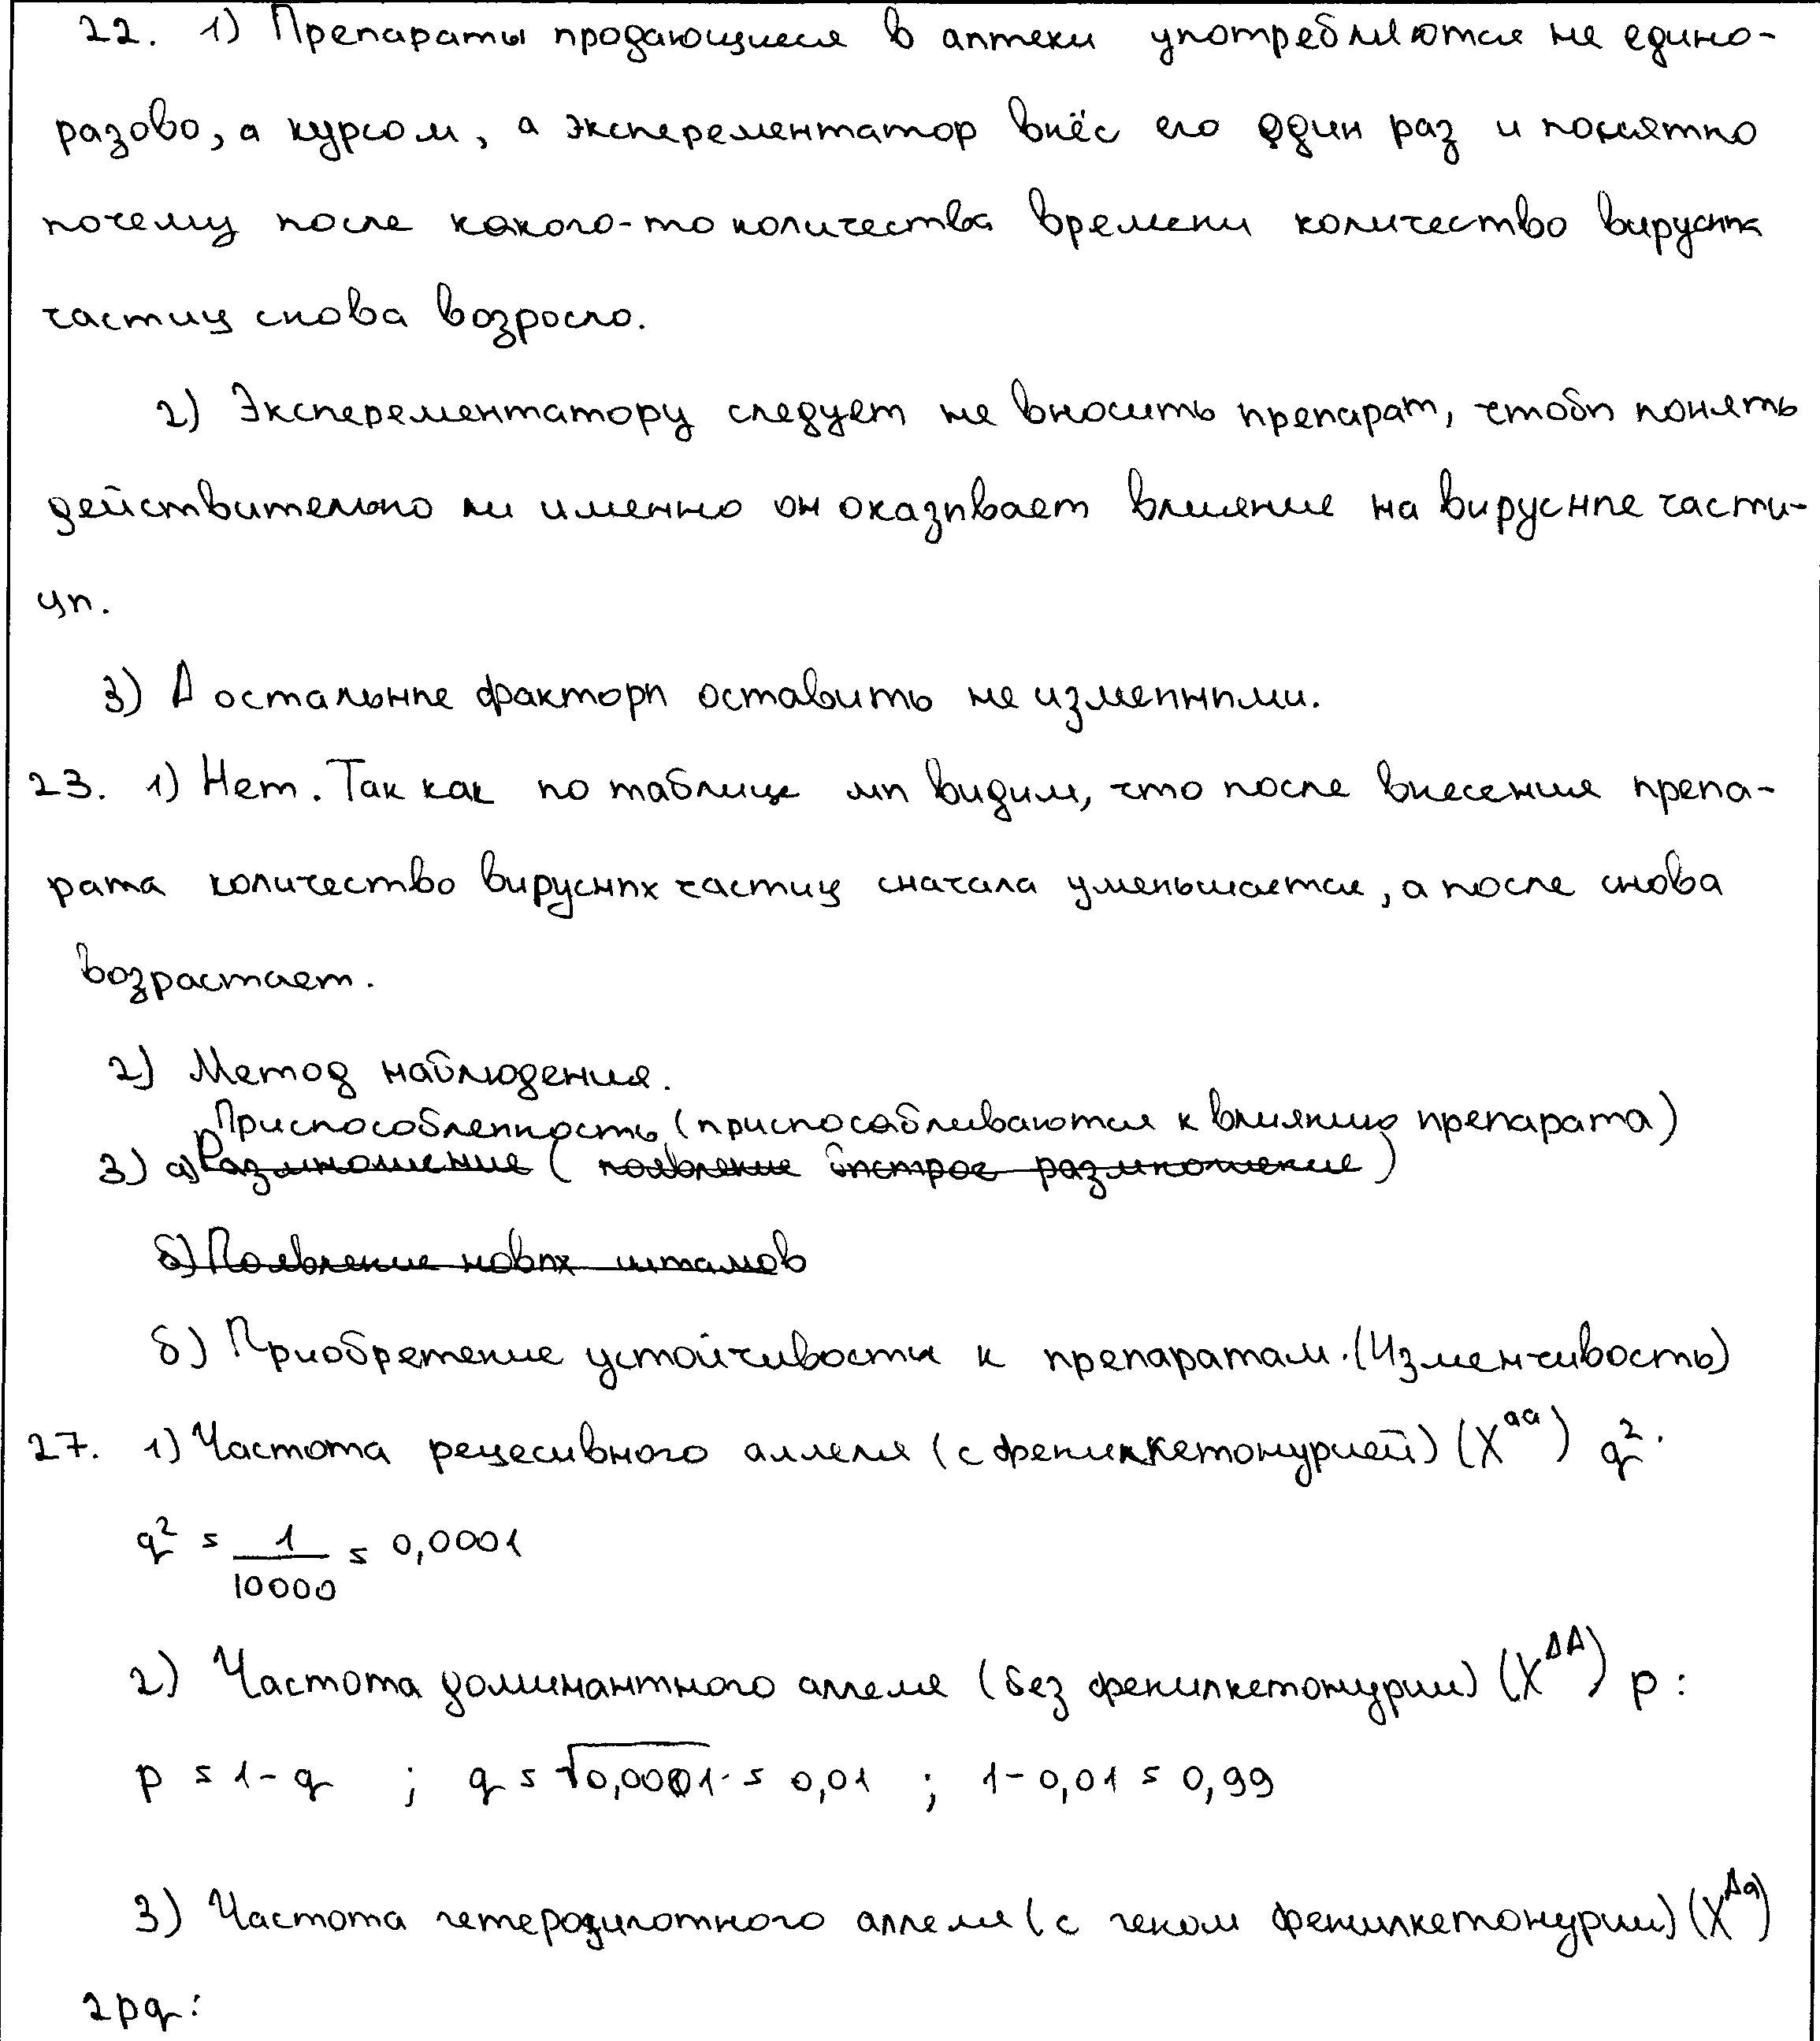 22. 1) Препараты продающиеся в аптеки употребляются не едино-
разово, а курсом, а эксперементатор внёс его один раз и понятно
почему после какого-то количества времени количество вирусны
частиц снова возросло.
2) Эксперементатору следует не вносить препарат, чтобы понять
действительно ли именно он оказывает влияние на вирусные части-
цы.
3) А остальные факторы оставить не изменными.
23. 1) Нет. Так как по таблице мы видим, что после внесения препа-
рата количество вирусных частиц сначала уменьшается, а после снова
возрастает.
2) Метод наблюдения.
Приспособленность (приспосабливаются к влиянию препарата)
3) а) Размножение ( появление быстрое размножение )
б) Появление новых штамов
б) Приобретение устойчивости к препаратам. (Изменчивость)
27. 1) Частота рецесивного аллеля (с фенилкетонурией) (X^aa) q².
q² = 1/10000 = 0,0001
2) Частота доминантного аллеля (без фенилкетонурии) (X^AA) p:
p = 1 - q ; q = √0,0001 = 0,01 ; 1 - 0,01 = 0,99
3) Частота гетерозиготного аллеля (с геном фенилкетонурии) (X^Aa)
2pq: